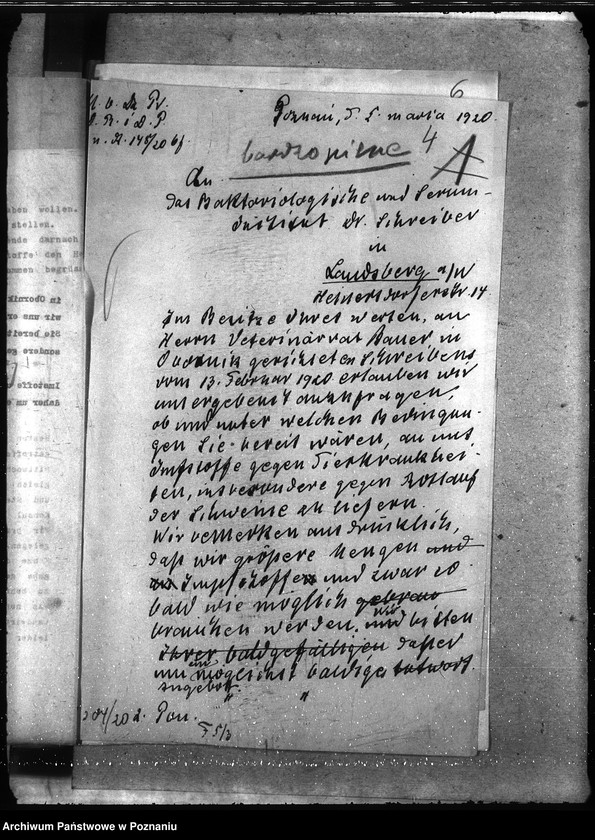 6
Poznań, d. 5. marca 1920.
n. Zl. 145/20 bf.
bardzo pilne 4 A
An
das Bakteriologische und Serum-
Institut Dr. Schreiber
in
Landsberg a/W
Heinersdorferstr. 14
Im Besitze Ihres werten, an
Herrn Veterinärrat Bauer in
Obornik gerichteten Schreibens
vom 13. Februar 1920 erlauben wir
uns ergebenst anzufragen,
ob und unter welchen Bedingun-
gen Sie bereit wären, an uns
Impfstoffe gegen Tierkrankhei-
ten, insbesondere gegen Rotlauf
der Schweine zu liefern.
Wir bemerken ausdrücklich,
daß wir größere Mengen and
Impfstoffe und zwar so
bald wie möglich gebrau
brauchen werden, und wir bitten
Ihrer baldgefälligen daher
um ein möglichst baldiges Antwort.
Angebot.
" "
Pon.
5/3
ahen wollen.
stellen.
ende darnach
toffe den He
ammen begrüs
Archiwum Państwowe w Poznaniu